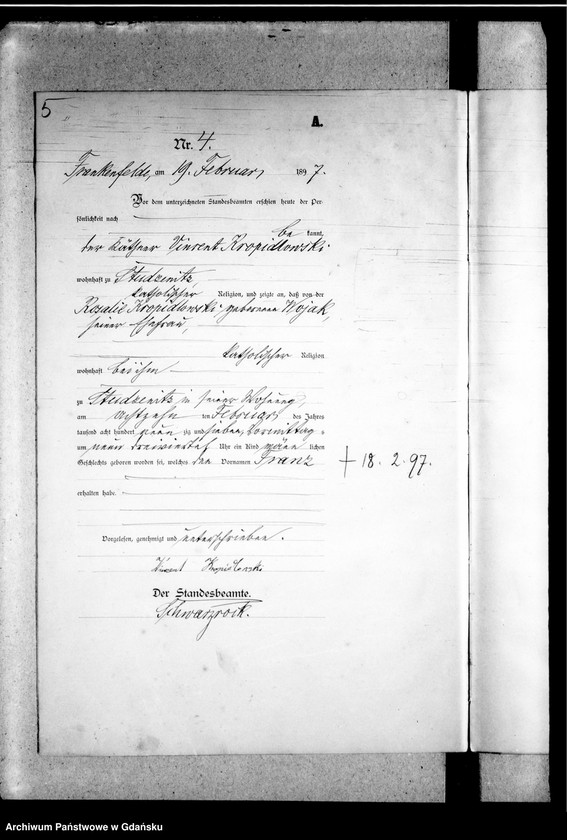 5
A.
Nr. 4.
Frankenfelde, am 19. Februar 1897.
Vor dem unterzeichneten Standesbeamten erschien heute der Per-
sönlichkeit nach
be kannt,
der Käthner Vincent Kropidlowski
wohnhaft zu Studzenitz
katholischer Religion, und zeigte an, daß von der
Rosalie Kropidlowski geborenen Wojak,
seiner Ehefrau,
katholischer Religion
wohnhaft bei ihm
zu Studzenitz in seiner Wohnung
am achtzehn ten Februar des Jahres
tausend acht hundert neun zig und sieben, Vormittag s
um neun dreiviertel Uhr ein Kind männ lichen
Geschlechts geboren worden sei, welches den Vornamen Franz
† 18. 2. 97.
erhalten habe.
Vorgelesen, genehmigt und unterschrieben.
Vincent Kropidlowski
Der Standesbeamte.
Schwarzrock.
Archiwum Państwowe w Gdańsku